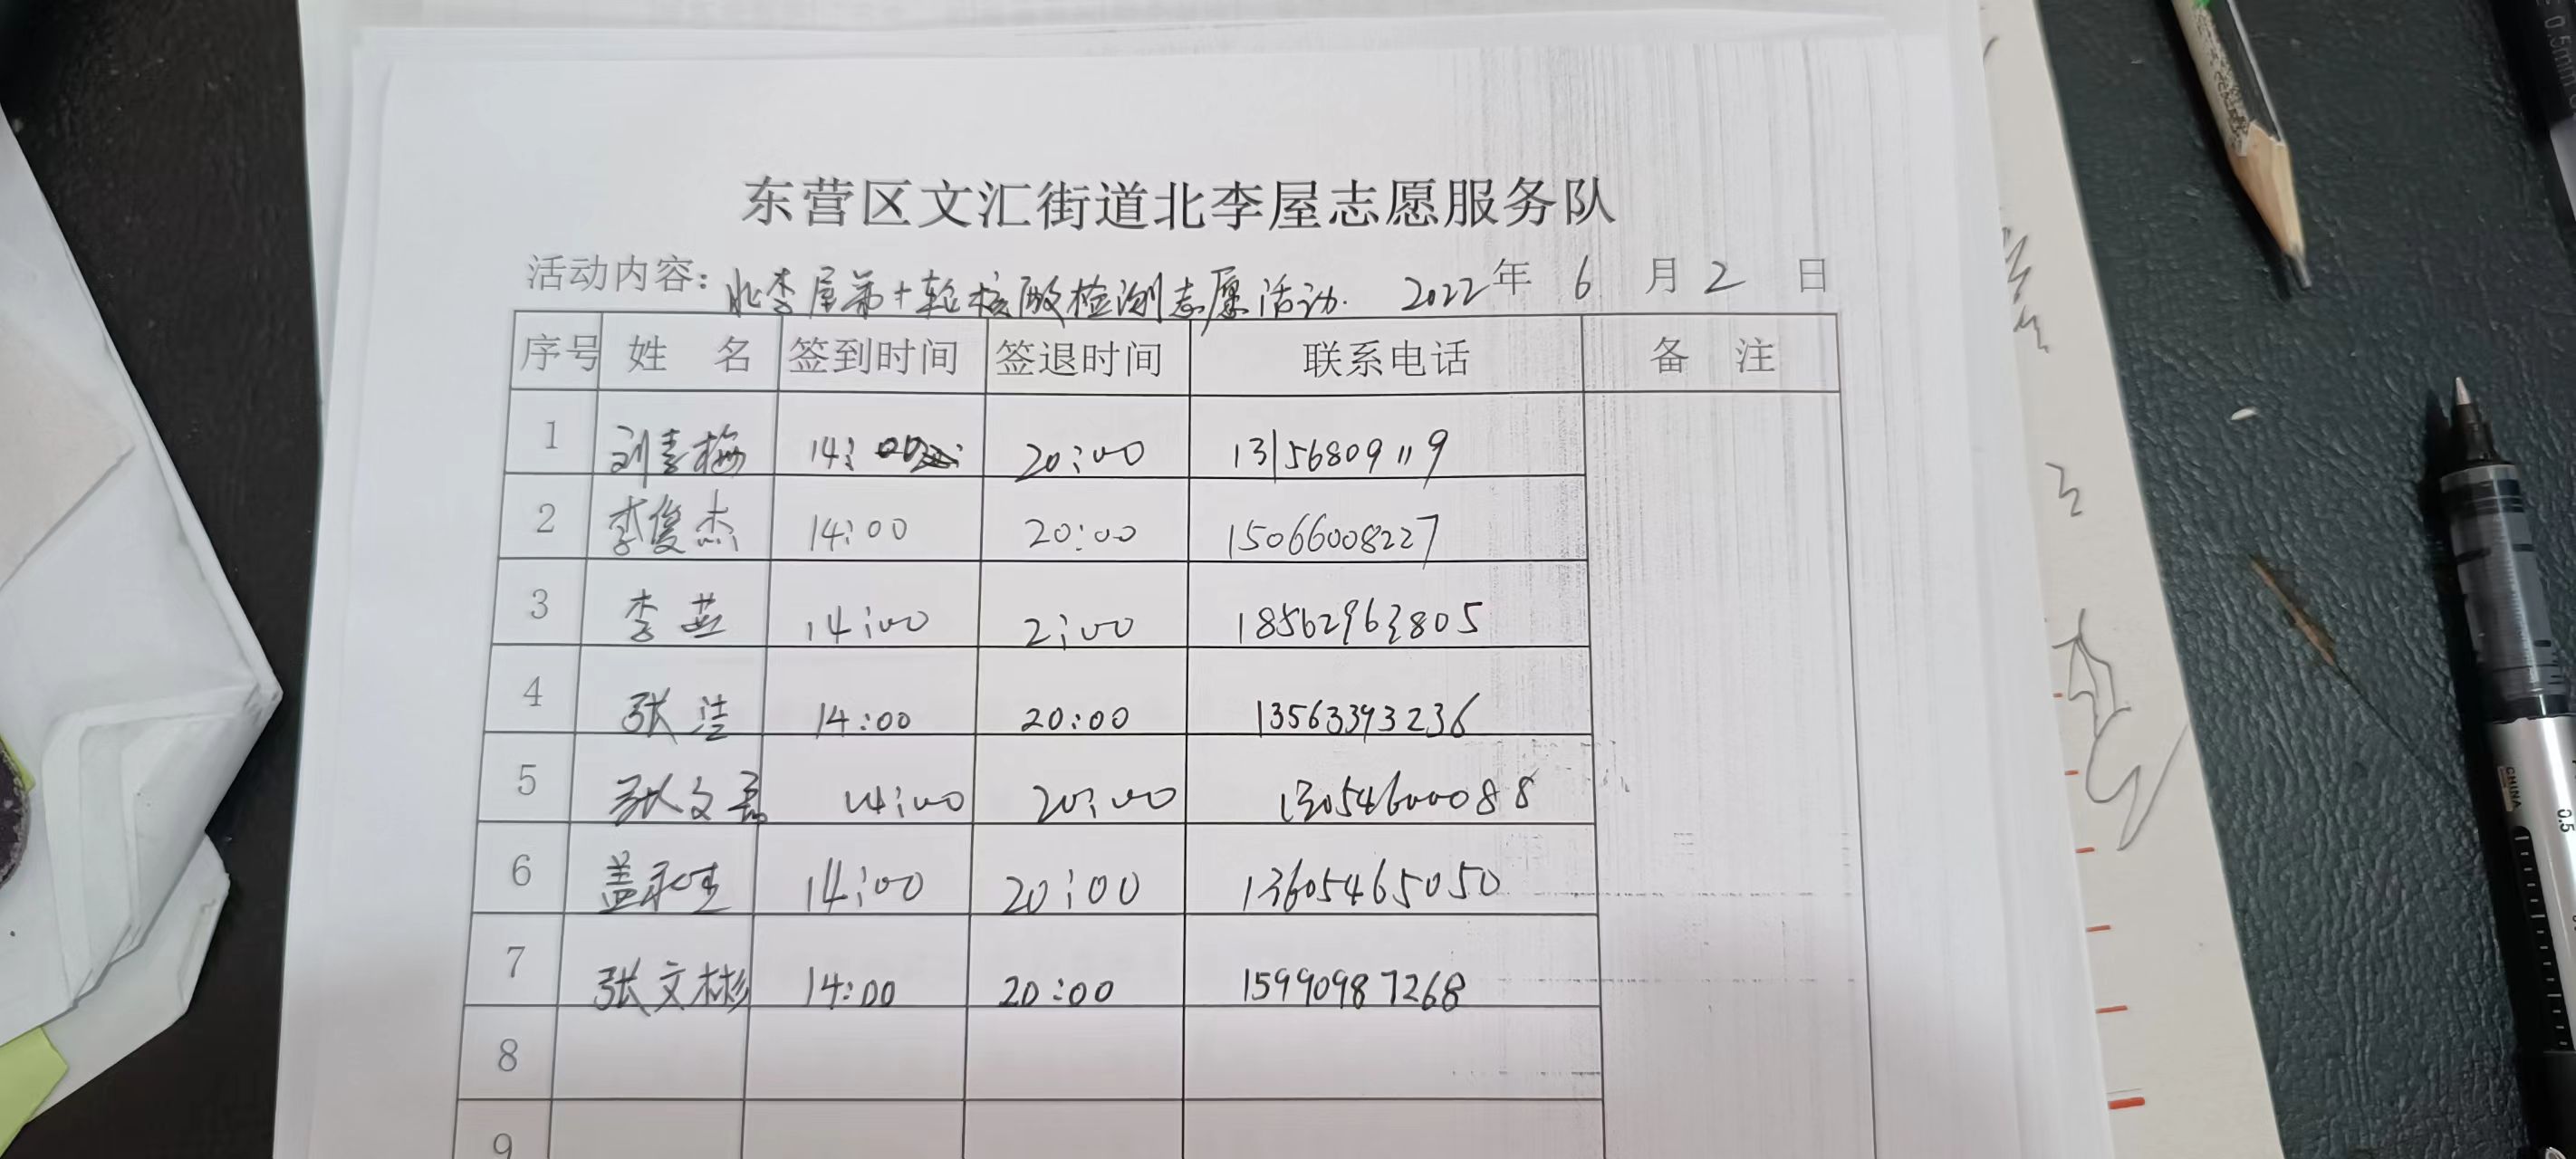 东营区文汇街道北李屋志愿服务队
活动内容：北李屋第十轮核酸检测志愿活动. 2022年 6 月 2 日
序号 姓 名 签到时间 签退时间 联系电话 备 注
1 刘青梅 14:00 20:00 13156809119
2 李俊杰 14:00 20:00 15066008227
3 李英 14:00 2:00 18562963805
4 张洁 14:00 20:00 13563393236
5 张文磊 14:00 20:00 13054600088
6 盖永生 14:00 20:00 13605465050
7 张文彬 14:00 20:00 15990987268
8
9
CHINA
0.5